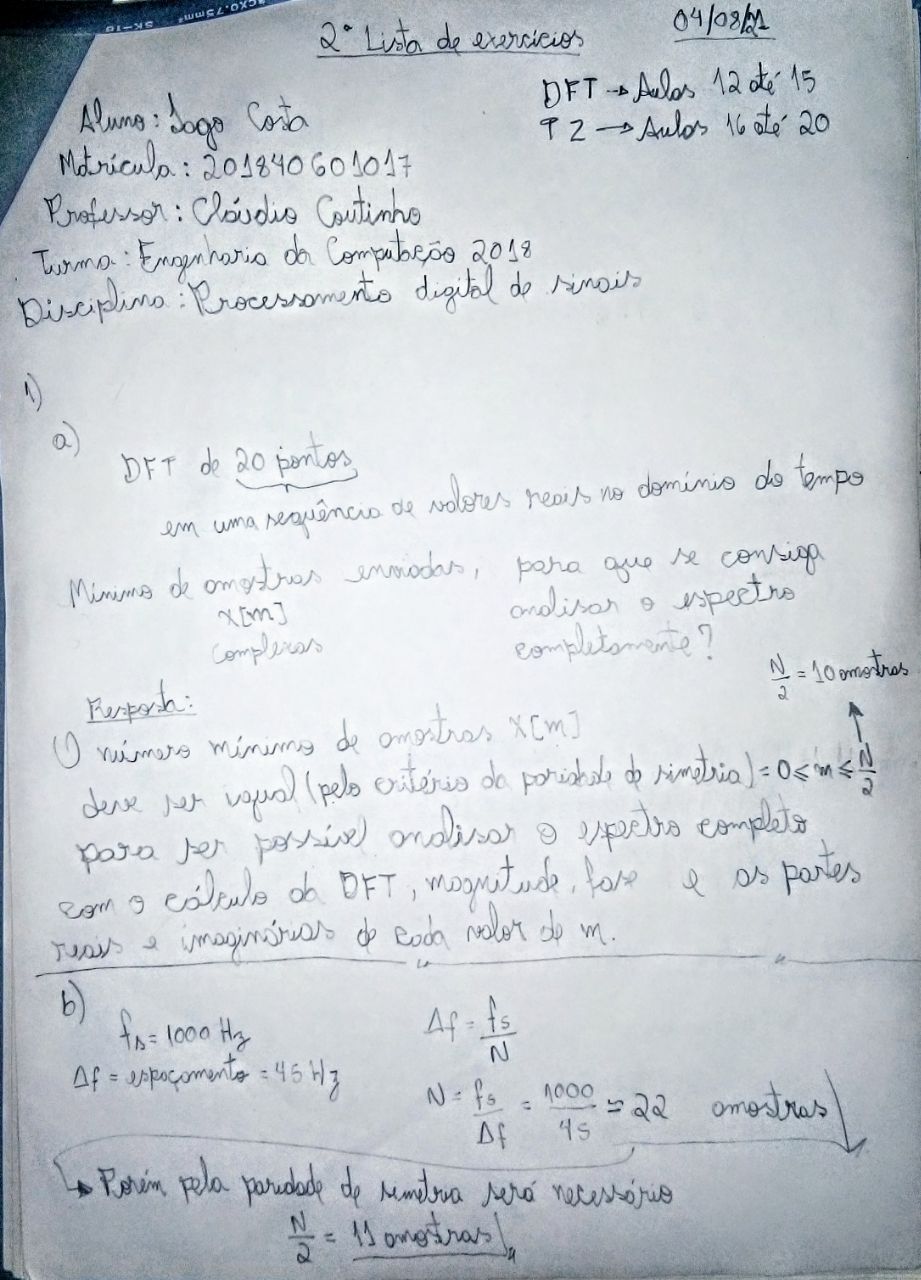 cx0.75mm²
SK-10
2ª Lista de exercícios
04/08/21
DFT → Aulas 12 até 15
TZ → Aulas 16 até 20
Aluno: Iago Costa
Matrícula: 201840601017
Professor: Cláudio Coutinho
Turma: Engenharia da Computação 2018
Disciplina: Processamento digital de sinais
1)
a)
DFT de 20 pontos
em uma sequência de valores reais no domínio do tempo
Mínimo de amostras enviadas, para que se consiga
X[m] analisar o espectro
complexas completamente?
N/2 = 10 amostras
Resposta:
O número mínimo de amostras X[m]
deve ser igual (pelo critério da paridade de simetria) = 0 ≤ m ≤ N/2
para ser possível analisar o espectro completo
com o cálculo da DFT, magnitude, fase e as partes
reais e imaginárias de cada valor de m.
b)
fs = 1000 Hz
Δf = fs/N
Δf = espaçamento = 45 Hz
N = fs/Δf = 1000/45 ≈ 22 amostras
↳ Porém pela paridade de simetria será necessário
N/2 = 11 amostras